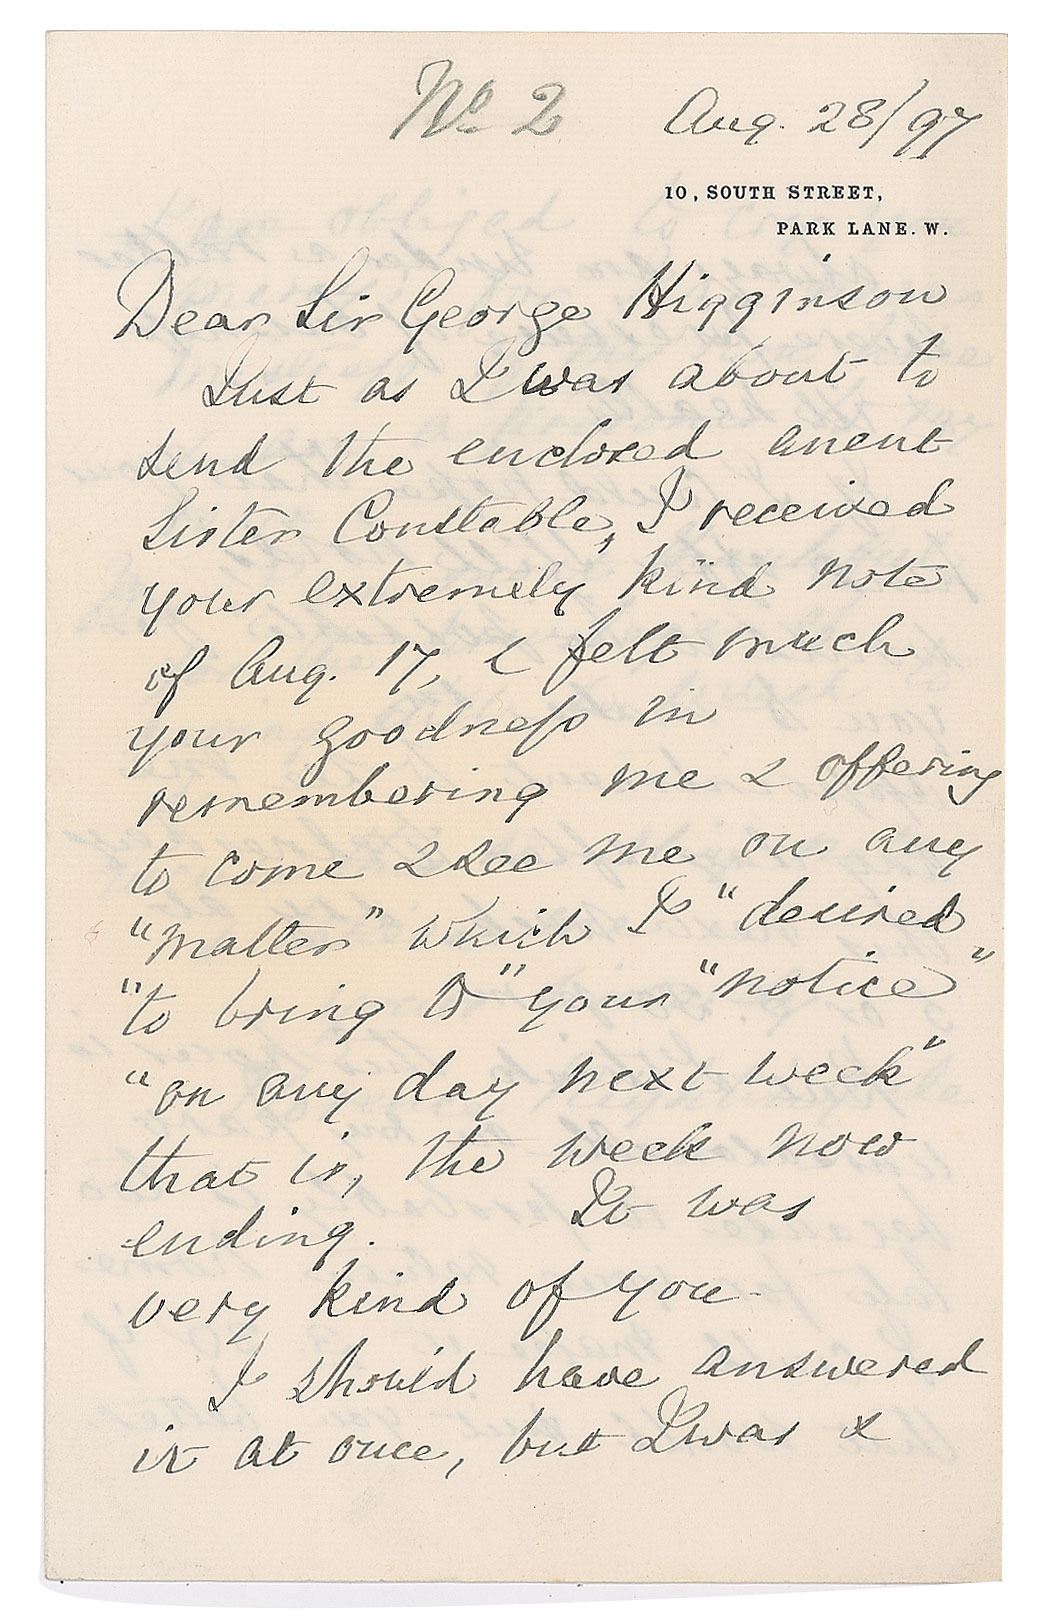 No. 2
Aug. 28/97
10, SOUTH STREET,
PARK LANE. W.
Dear Sir George Higginson
Just as I was about to
send the enclosed anent
Sister Constable, I received
your extremely kind note
of Aug. 17, & felt much
your goodness in
remembering me & offering
to come & see me on any
"matter" which I "desired
"to bring to" your "notice"
"on any day next week"
that is, the week now
ending. It was
very kind of you.
I should have answered
it at once, but I was &